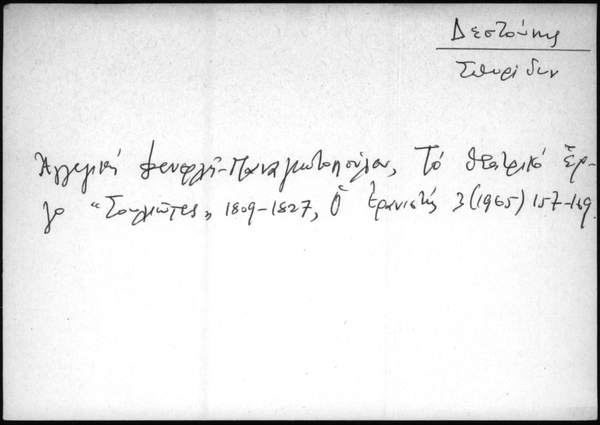 Δεστούνης
Σπυρίδων
Αγγελική Φενερλή-Παναγιωτοπούλου, Τό θεατρικό ἔρ-
γο "Σουλιῶτες", 1809-1827, Ὁ Ἐρανιστής 3 (1965) 157-169.